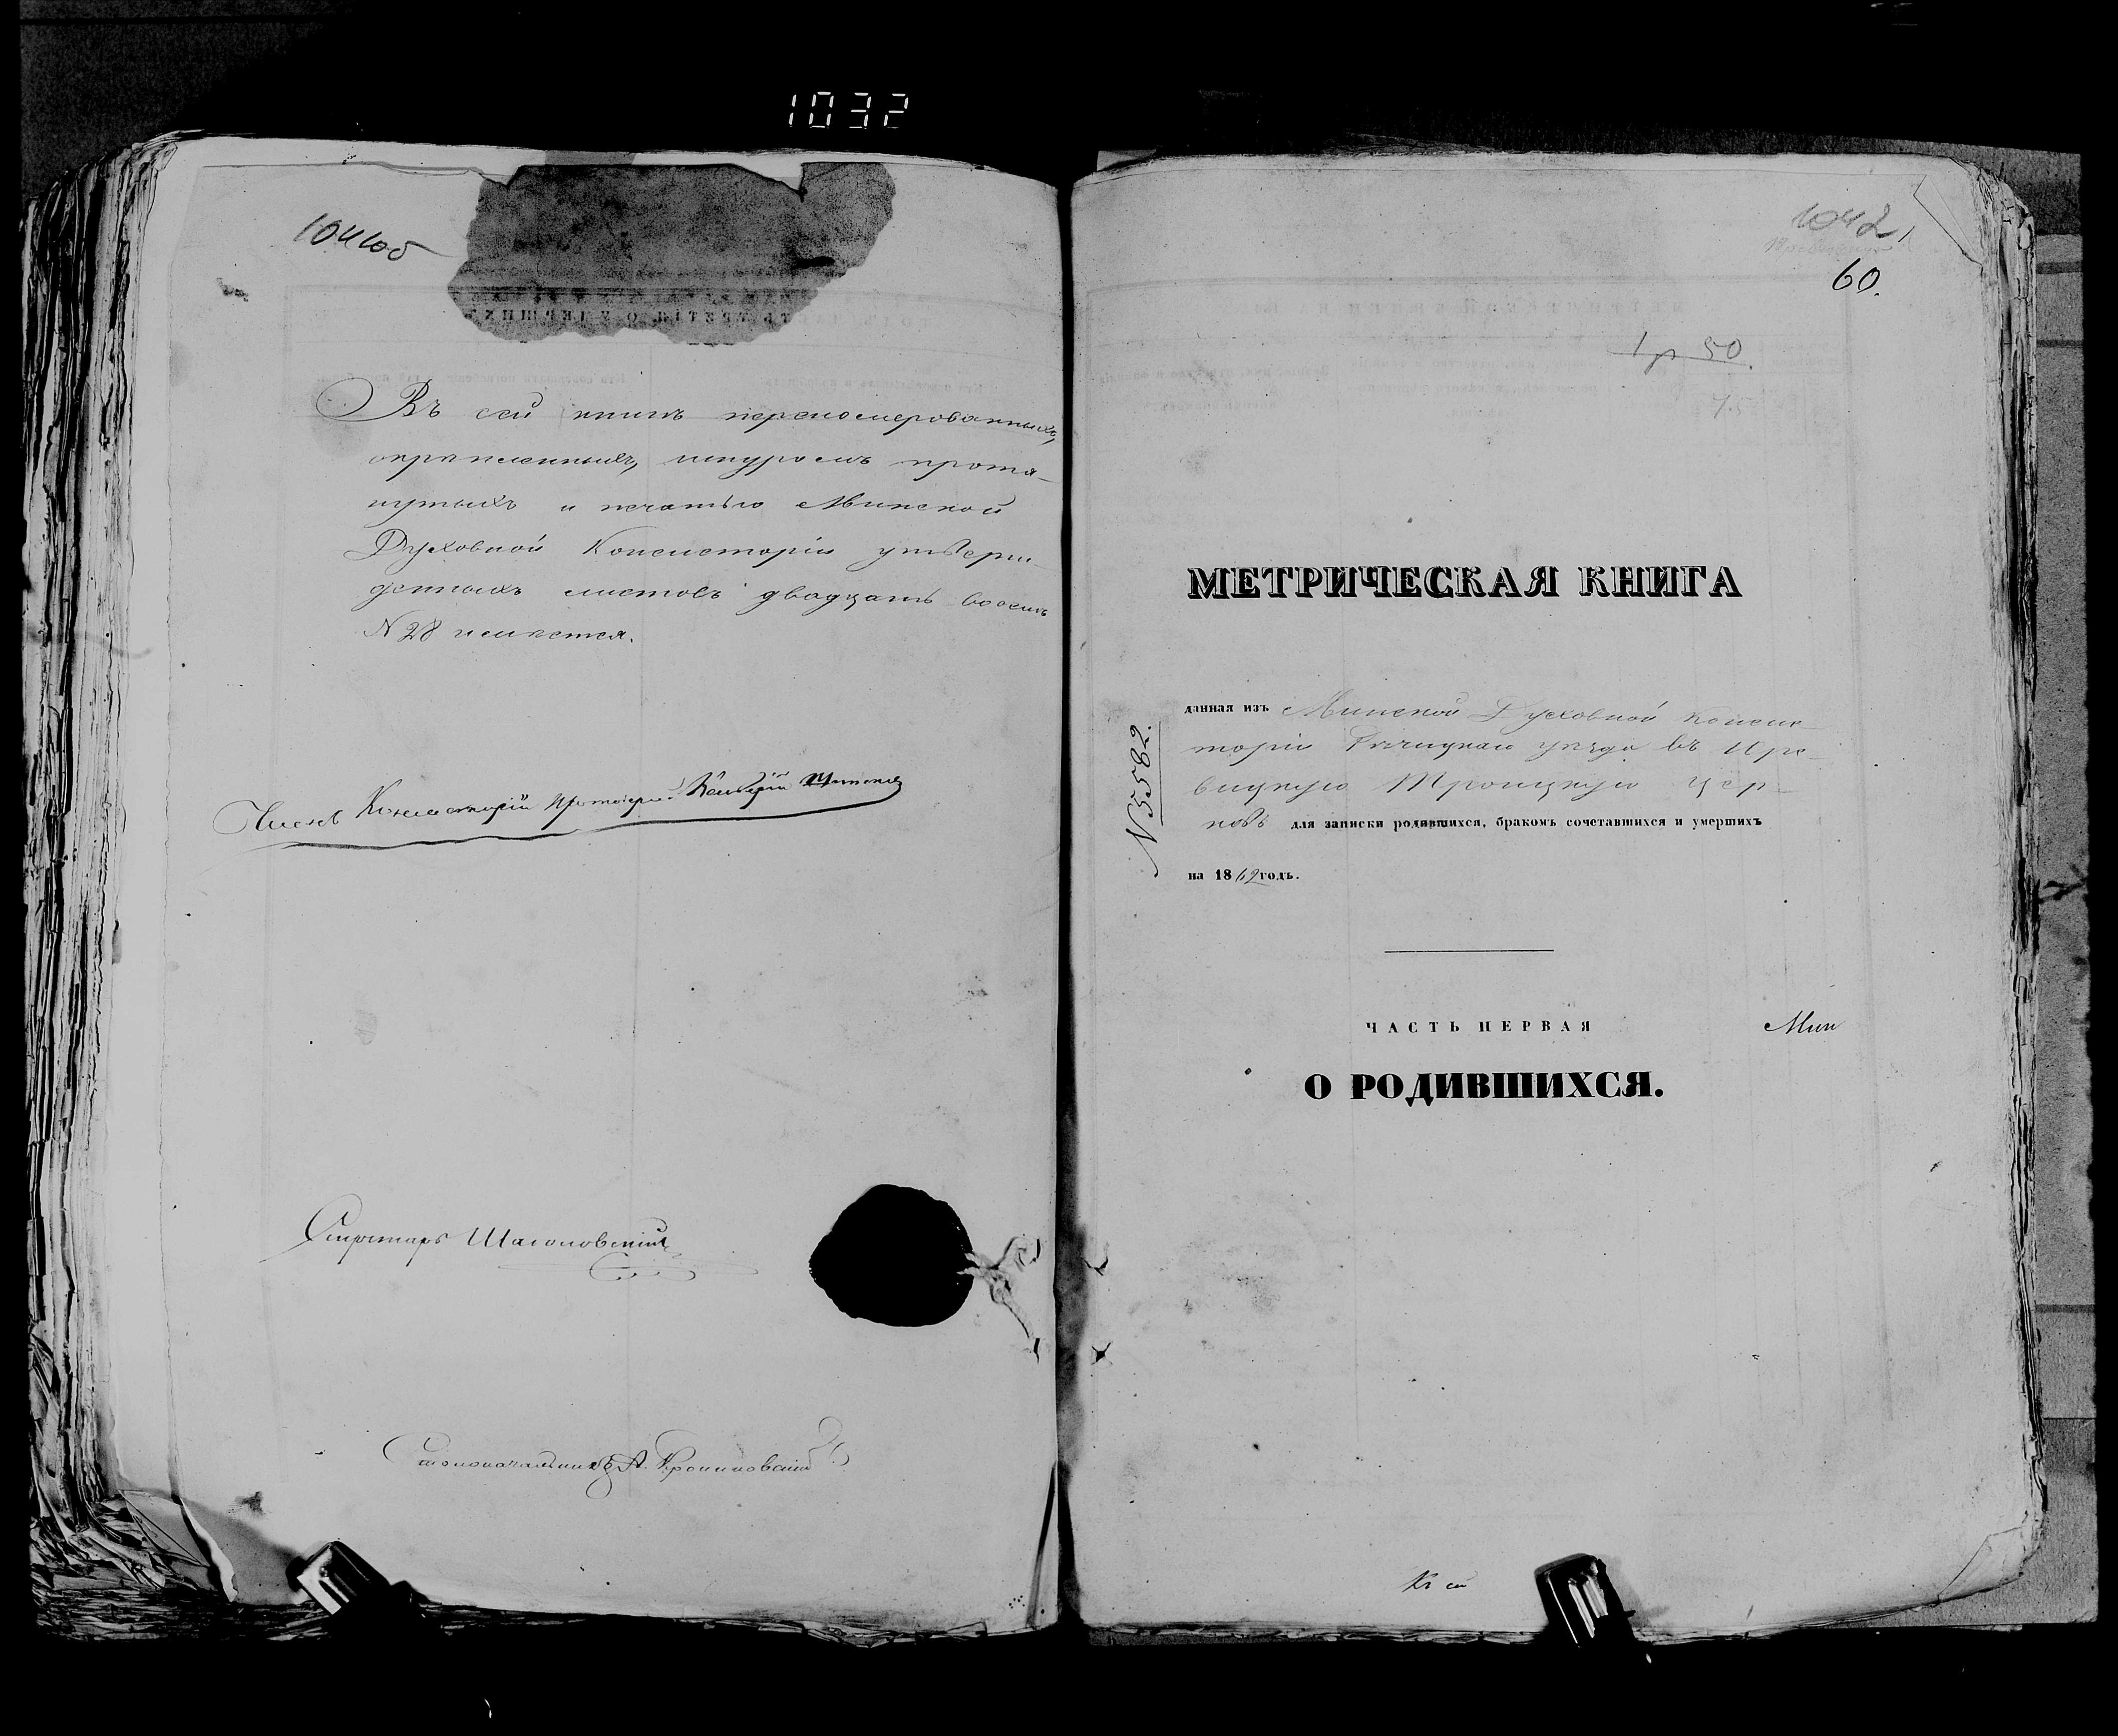 1032
1041об
Въ сей книгѣ перенумерованныхъ,
скрѣпленныхъ, шнуромъ протя-
нутыхъ и печатью Минской
Духовной Консисторіи утверж-
денныхъ листовъ двадцать восемь
№ 28 имѣется.
Членъ Консисторіи Протоіерей
Секретарь
Столоначальникъ А.
1042
60.
1 р 50
75
МЕТРИЧЕСКАЯ КНИГА
данная изъ Минской Духовной Консис-
торіи Рѣчицкаго уѣзда въ Юре-
вицкую Троицкую цер-
ковь для записки родившихся, бракомъ сочетавшихся и умершихъ
на 1862 годъ.
N 5582.
ЧАСТЬ ПЕРВАЯ
Мин
О РОДИВШИХСЯ.
Къ сей